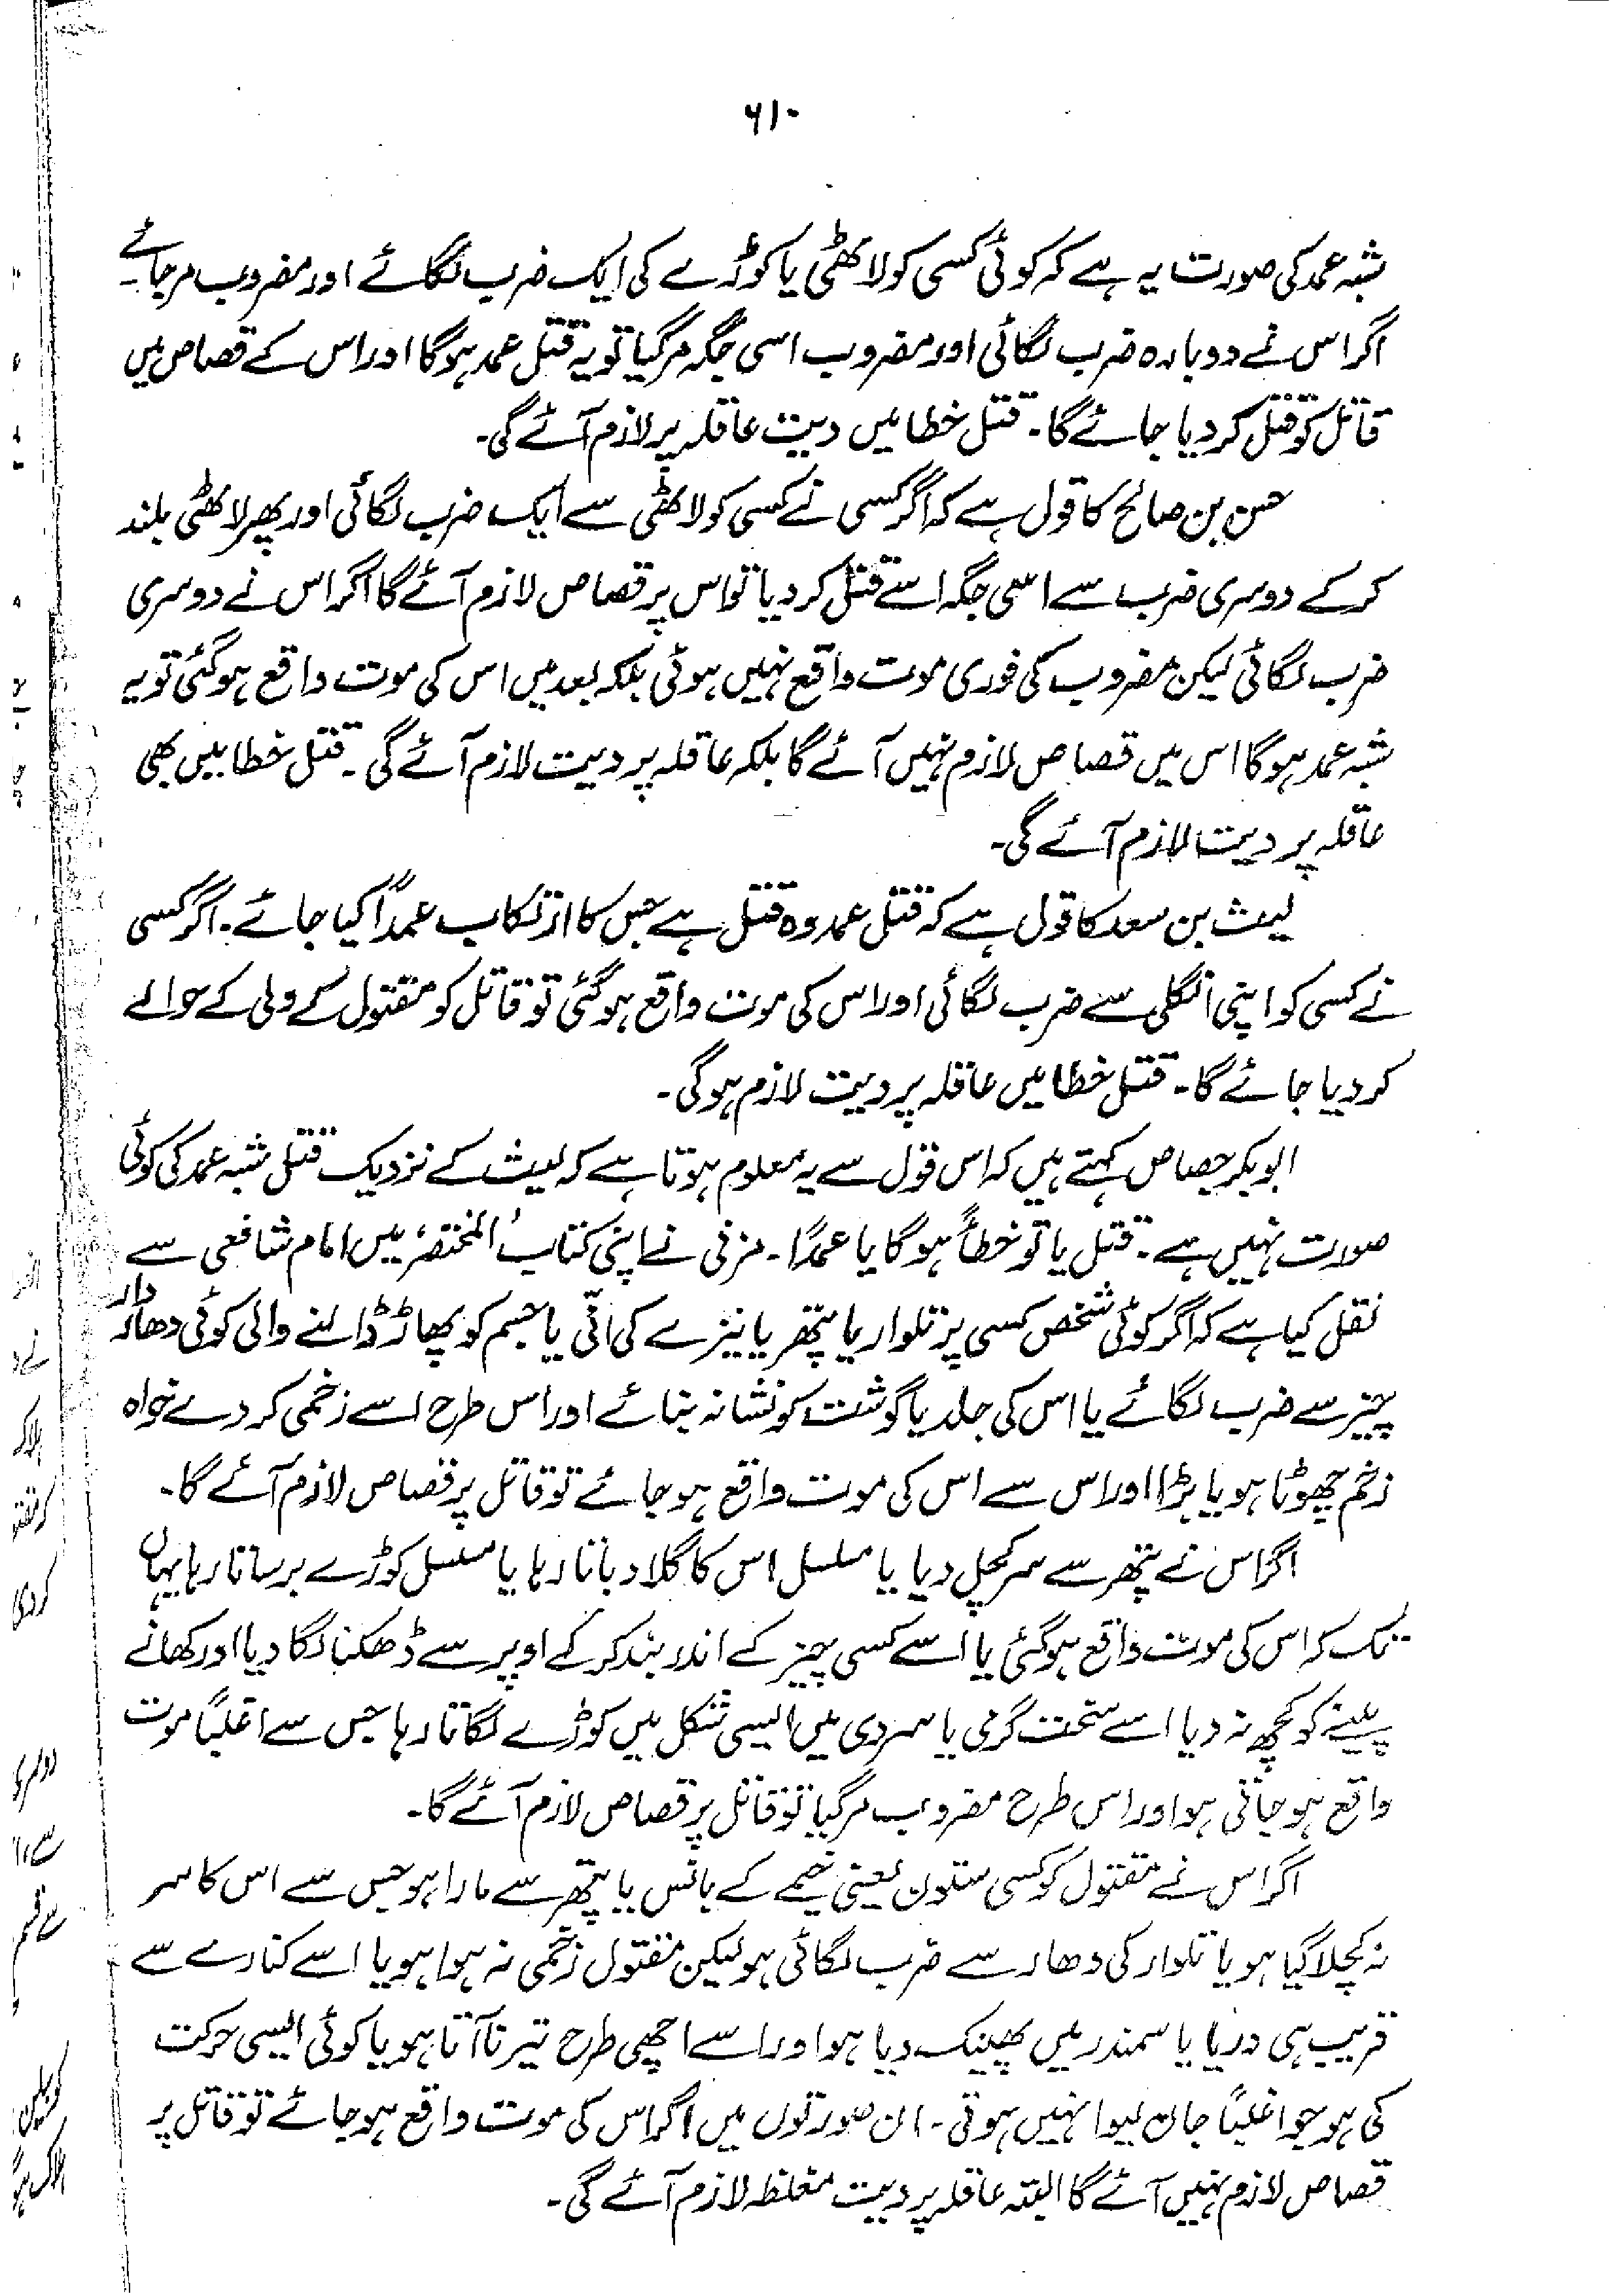 ۶۱۰
شبہ عمد کی صورت یہ ہے کہ کوئی کسی کو لاٹھی یا کوڑے کی ایک ضرب لگائے اور مضروب مر جائے۔
اگر اس نے دوبارہ ضرب لگائی اور مضروب اسی جگہ مر گیا تو یہ قتل عمد ہوگا اور اس کے قصاص میں
قاتل کو قتل کر دیا جائے گا۔ قتل خطا میں دیت عاقلہ پر لازم آئے گی۔
حسن بن صالح کا قول ہے کہ اگر کسی نے کسی کو لاٹھی سے ایک ضرب لگائی اور پھر لاٹھی بلند
کرکے دوسری ضرب سے اسی جگہ اسے قتل کر دیا تو اس پر قصاص لازم آئے گا اگر اس نے دوسری
ضرب لگائی لیکن مضروب کی فوری موت واقع نہیں ہوئی بلکہ بعد میں اس کی موت واقع ہوگئی تو یہ
شبہ عمد ہوگا اس میں قصاص لازم نہیں آئے گا بلکہ عاقلہ پر دیت لازم آئے گی۔ قتل خطا میں بھی
عاقلہ پر دیت لازم آئے گی۔
لیث بن سعد کا قول ہے کہ قتل عمد وہ قتل ہے جس کا ارتکاب عمداً کیا جائے۔ اگر کسی
نے کسی کو اپنی انگلی سے ضرب لگائی اور اس کی موت واقع ہوگئی تو قاتل کو مقتول کے ولی کے حوالے
کر دیا جائے گا۔ قتل خطا میں عاقلہ پر دیت لازم ہوگی۔
ابوبکر جصاص کہتے ہیں کہ اس قول سے یہ معلوم ہوتا ہے کہ لیث کے نزدیک قتل شبہ عمد کی کوئی
صورت نہیں ہے۔ قتل یا تو خطأً ہوگا یا عمداً۔ مزنی نے اپنی کتاب 'المختصر' میں امام شافعی سے
نقل کیا ہے کہ اگر کوئی شخص کسی پر تلوار یا پتھر یا نیزے کی انّی یا جسم کو پھاڑ ڈالنے والی کوئی دھار دار
چیز سے ضرب لگائے یا اس کی جلد یا گوشت کو نشانہ بنائے اور اس طرح اسے زخمی کردے خواہ
زخم چھوٹا ہو یا بڑا اور اس سے اس کی موت واقع ہو جائے تو قاتل پر قصاص لازم آئے گا۔
اگر اس نے پتھر سے سر کچل دیا یا مسلسل اس کا گلا دباتا رہا یا مسلسل کوڑے برساتا رہا یہاں
تک کہ اس کی موت واقع ہوگئی یا اسے کسی چیز کے اندر بند کرکے اوپر سے ڈھکنا لگا دیا اور کھانے
پینے کو کچھ نہ دیا اسے سخت گرمی یا سردی میں ایسی شکل میں کوڑے لگاتا رہا جس سے اغلباً موت
واقع ہو جاتی ہو اور اس طرح مضروب مر گیا تو قاتل پر قصاص لازم آئے گا۔
اگر اس نے مقتول کو کسی ستون یعنی خیمے کے بانس یا پتھر سے مارا ہو جس سے اس کا سر
نہ کچلا گیا ہو یا تلوار کی دھار سے ضرب لگائی ہو لیکن مقتول زخمی نہ ہوا ہو یا اسے کنارے سے
قریب ہی دریا یا سمندر میں پھینک دیا ہو اور اسے اچھی طرح تیرنا آتا ہو یا کوئی ایسی حرکت
کی ہو جو اغلباً جان لیوا نہیں ہوتی۔ ان صورتوں میں اگر اس کی موت واقع ہو جائے تو قاتل پر
قصاص لازم نہیں آئے گا البتہ عاقلہ پر دیت مغلظہ لازم آئے گی۔